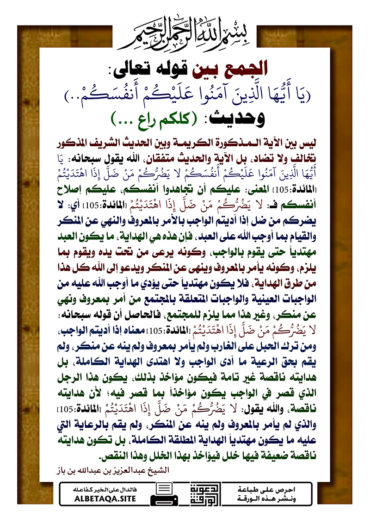 بسم الله الرحمن الرحيم
الجمع بين قوله تعالى:
(يَا أَيُّهَا الَّذِينَ آمَنُوا عَلَيْكُمْ أَنْفُسَكُمْ..)
وحديث: (كلكم راع ...)
ليس بين الآية المذكورة الكريمة وبين الحديث الشريف المذكور
تخالف ولا تضاد، بل الآية والحديث متفقان، الله يقول سبحانه: يَا
أَيُّهَا الَّذِينَ آمَنُوا عَلَيْكُمْ أَنْفُسَكُمْ لَا يَضُرُّكُمْ مَنْ ضَلَّ إِذَا اهْتَدَيْتُمْ
[المائدة:105] المعنى: عليكم أن تجاهدوا أنفسكم، عليكم إصلاح
أنفسكم فـ: لَا يَضُرُّكُمْ مَنْ ضَلَّ إِذَا اهْتَدَيْتُمْ [المائدة:105] أي: لا
يضركم من ضل إذا أديتم الواجب بالأمر بالمعروف والنهي عن المنكر
والقيام بما أوجب الله على العبد، فإن هذه هي الهداية، ما يكون العبد
مهتديا حتى يقوم بالواجب، وكونه يرعى من تحت يده ويقوم بما
يلزم، وكونه يأمر بالمعروف وينهى عن المنكر ويدعو إلى الله كل هذا
من طرق الهداية، فلا يكون مهتديا حتى يؤدي ما أوجب الله عليه من
الواجبات العينية والواجبات المتعلقة بالمجتمع من أمر بمعروف ونهي
عن منكر، وغير هذا مما يلزم للمجتمع، فالحاصل أن قوله سبحانه:
لَا يَضُرُّكُمْ مَنْ ضَلَّ إِذَا اهْتَدَيْتُمْ [المائدة:105] معناه إذا أديتم الواجب،
ومن ترك الحبل على الغارب ولم يأمر بمعروف ولم ينه عن منكر، ولم
يقم بحق الرعية ما أدى الواجب ولا اهتدى الهداية الكاملة، بل
هدايته ناقصة غير تامة فيكون مؤاخذ بذلك، يكون هذا الرجل
الذي قصر في الواجب يكون مؤاخذاً بما قصر فيه؛ لأن هدايته
ناقصة، والله يقول: لَا يَضُرُّكُمْ مَنْ ضَلَّ إِذَا اهْتَدَيْتُمْ [المائدة:105]
والذي لم يأمر بالمعروف ولم ينه عن المنكر، ولم يقم بالرعاية التي
عليه ما يكون مهتدياً الهداية المطلقة الكاملة، بل تكون هدايته
ناقصة ضعيفة فيها خلل فيؤاخذ بهذا الخلل وهذا النقص.
الشيخ عبدالعزيز بن عبدالله بن باز
احرص على طباعة
ونشر هذه الورقة
الورقة الدعوية
فالدال على الخير كفاعله
ALBETAQA.SITE